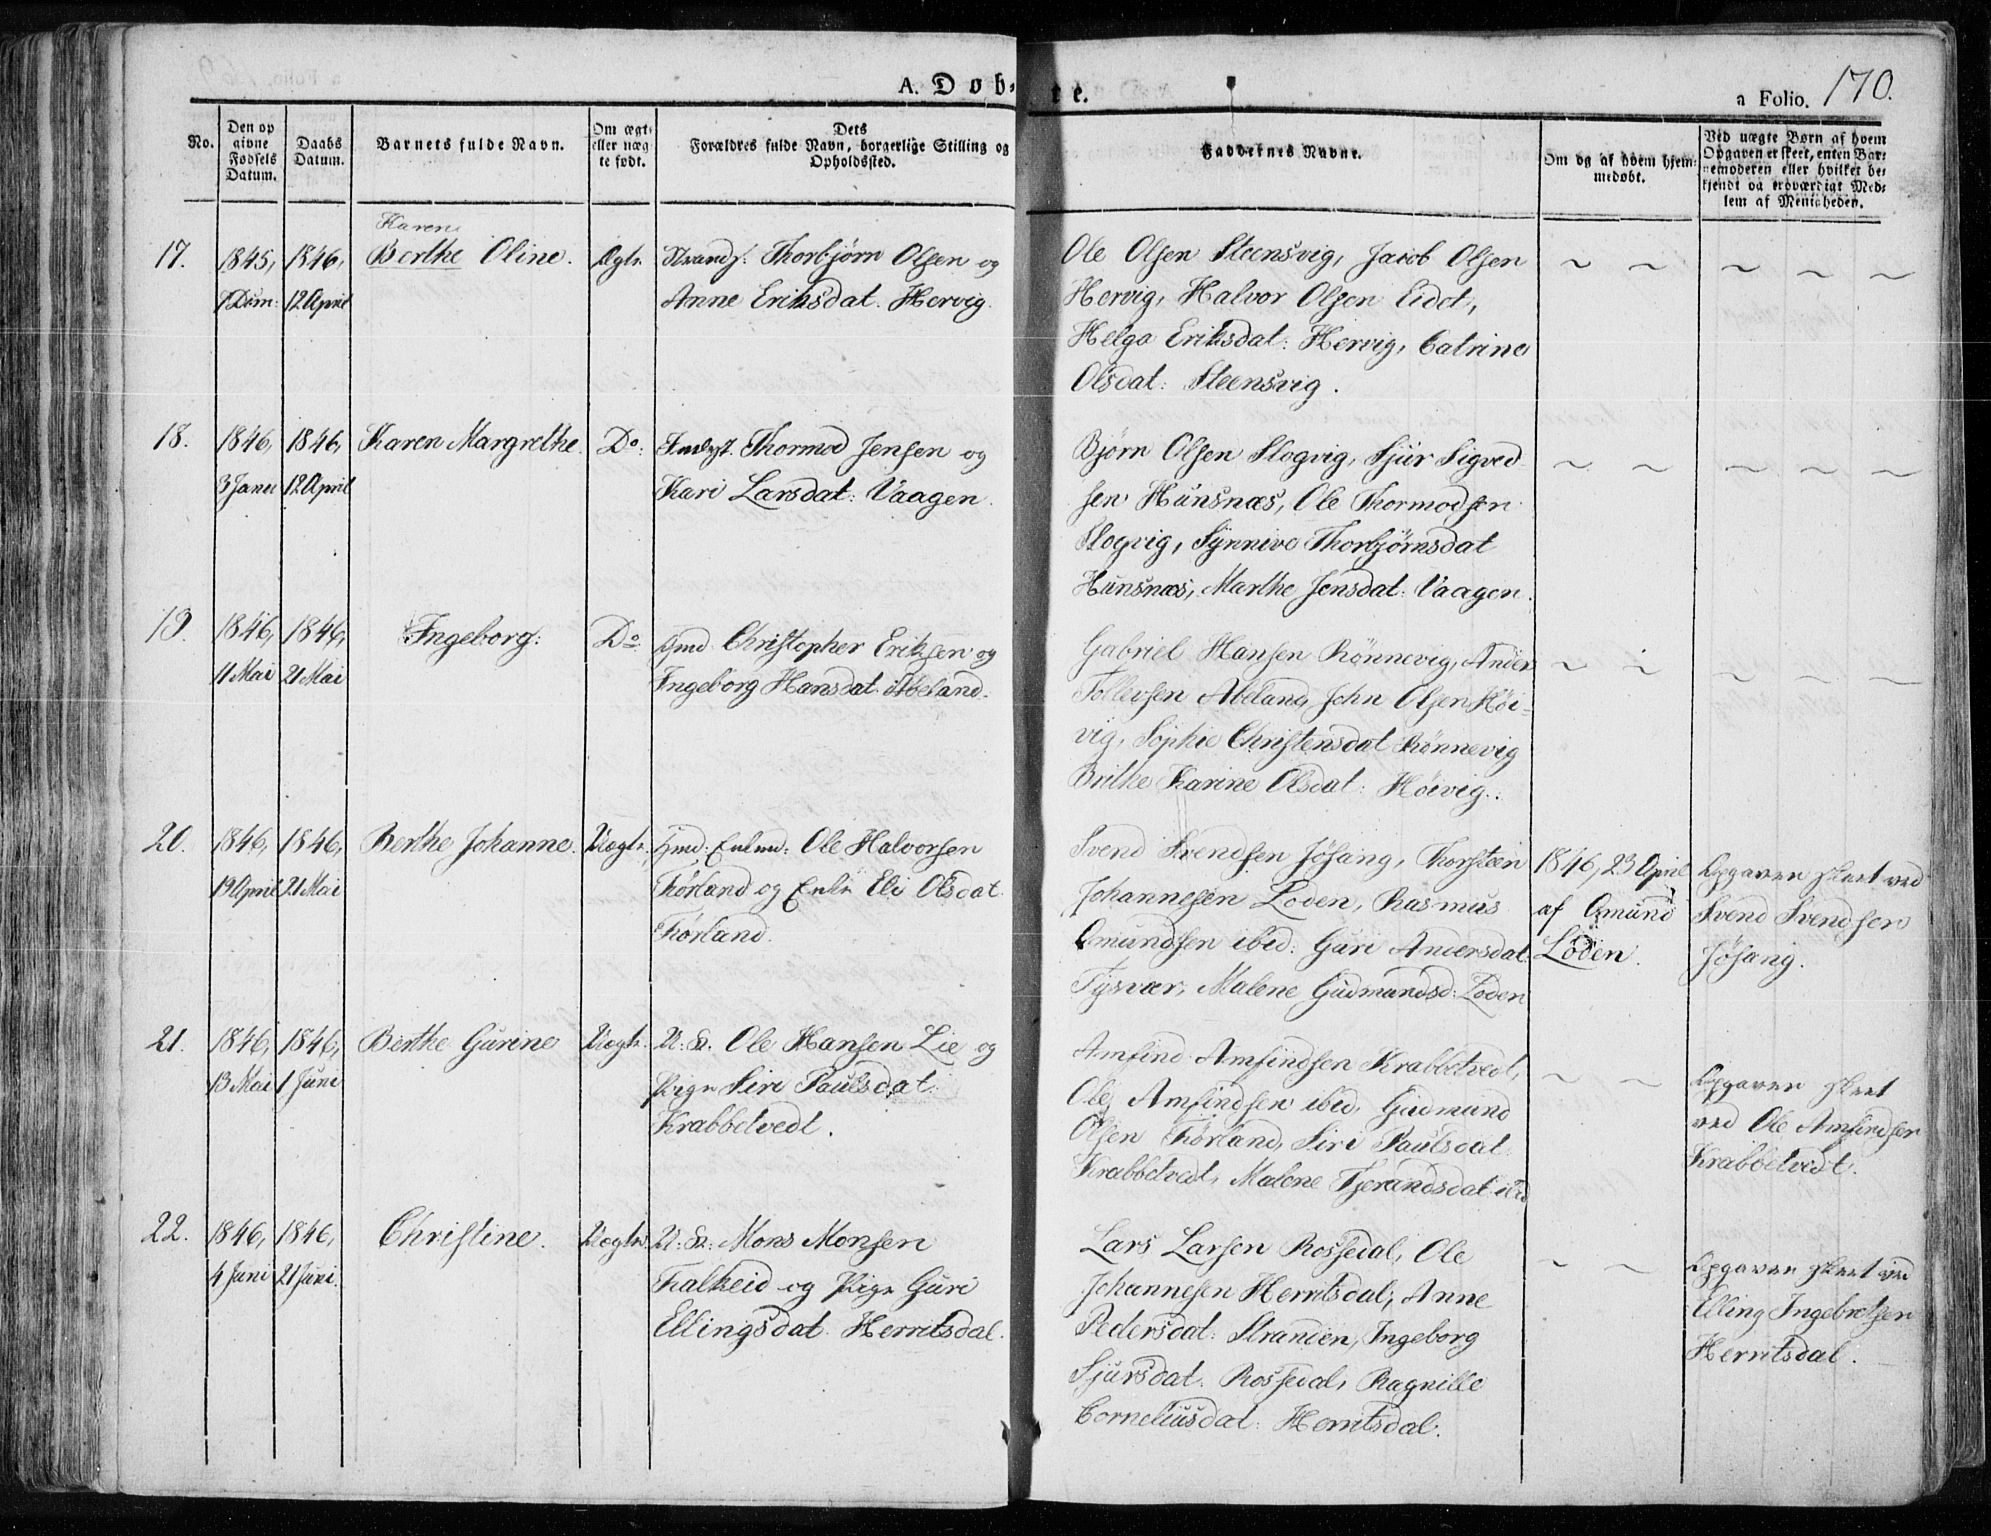 A. Døb-
te.
a Folio. 170.
No.
Den op
givne
Fødsels
Datum.
Daabs
Datum.
Barnets fulde Navn.
Om ægte
eller uæg
te født.
Dets
Forældres fulde Navn, borgerlige Stilling og
Opholdssted.
Faddernes Navne.
Om og af hvem hjem-
medøbt.
Ved uægte Børn af hvem
Opgaven er skeet, enten Bar-
nemoderen eller hvilket be-
kjendt og troværdigt Med-
lem af Menigheden.
17.
1845,
1846,
12 April
Karen
Berthe Oline.
Ægte.
Strands. Thorbjørn Olsen og
Anne Eriksdat. Hervig.
Ole Olsen Steensvig, Jacob Olsen
Hervig, Halvor Olsen Eidet,
Helga Eriksdat: Hervig, Catrine
Olsdat: Steensvig.
18.
1846,
3 Janu
1846,
12 April
Karen Margrethe.
Do:
Thormod Jensen og
Kari Larsdat: Vaagen.
Bjørn Olsen Slogvig, Sjur Sigved
sen Hunsnæs, Ole Thormodsen
Slogvig, Synnive Thorbjørnsdat
Hunsnæs, Marthe Jensdat: Vaagen.
19.
1846,
11 Mai
1846,
21 Mai
Ingeborg:
Do
Gmd Christopher Eriksen og
Ingeborg Hansdat. Abeland.
Gabriel Hansen Rønnevig, Anders
Tollevsen Abeland, John Olsen Høi-
vig, Sophie Christensdat Rønnevig
Brithe Karine Olsdat: Høivig.
20.
1846,
19 April
1846,
21 Mai
Berthe Johanne.
Uægte.
Gmd: Enkmd: Ole Halvorsen
Førland og Enke Eli Olsdat
Førland.
Svend Svendsen Jøsang, Thorsten
Johannesen Loden, Rasmus
Omundsen ibid: Guri Andersdat.
Tysvær, Malene Gudmundsd: Loden
1846, 23 April
af Omund
Loden.
Opgaven skeet ved
Svend Svendsen
Jøsang.
21.
1846,
13 Mai
1846,
1 Juni
Berthe Gurine
Uægte.
U: K. Ole Hansen Lie og
Pige Siri Paulsdat:
Krabbetvedt.
Amfind Amfindsen Krabbetvedt,
Ole Amfindsen ibid, Gudmund
Olsen Førland, Siri Paulsdat
Krabbetvedt, Malene Tjerandsdat ibid
Opgaven skeet
ved Ole Amfindsen
Krabbetvedt.
22.
1846,
4 Juni
1846,
21 Juni.
Christine.
Uægte.
U: K: Mons Monsen
Falkeid og Pige Guri
Ellingsdat. Herritsdal.
Lars Larsen Rossedal, Ole
Johannesen Herritsdal, Anne
Pedersdat: Stranden, Ingeborg
Sjursdat. Rossedal, Ragnille
Corneliusdat: Herritsdal.
Opgaven skeet ved
Elling Ingebretsen
Herritsdal.